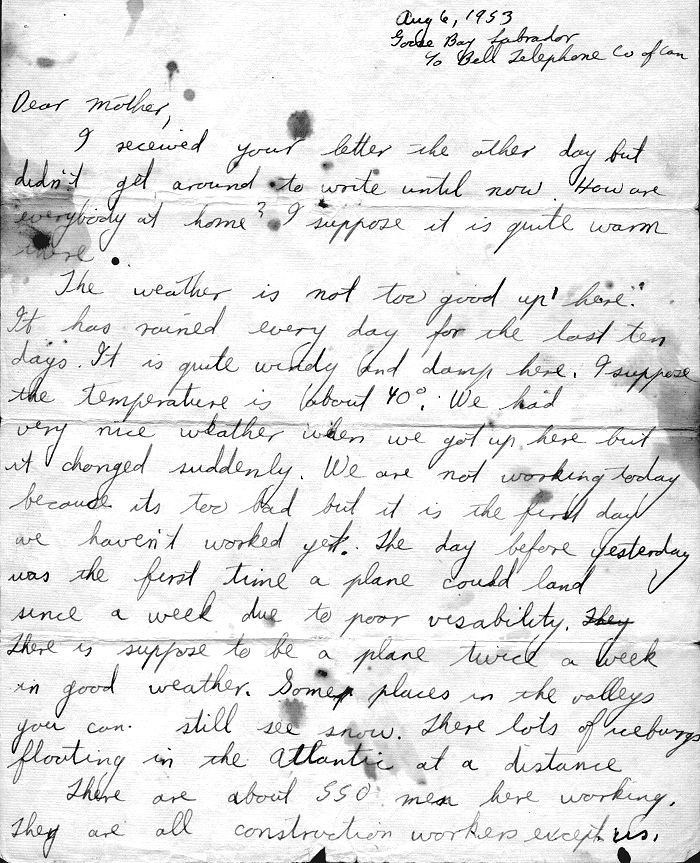 Aug 6, 1953
Goose Bay Labrador
c/o Bell Telephone Co of Can
Dear Mother,
I received your letter the other day but
didn't get around to write until now. How are
everybody at home? I suppose it is quite warm
there.
The weather is not too good up here.
It has rained every day for the last ten
days. It is quite windy and damp here. I suppose
the temperature is about 40°. We had
very nice weather when we got up here but
it changed suddenly. We are not working today
because its too bad but it is the first day
we haven't worked yet. The day before yesterday
was the first time a plane could land
since a week due to poor visability. They
There is suppose to be a plane twice a week
in good weather. Some places in the valleys
you can still see snow. There lots of iceburgs
floating in the Atlantic at a distance
There are about 550 men here working.
They are all construction workers except us.